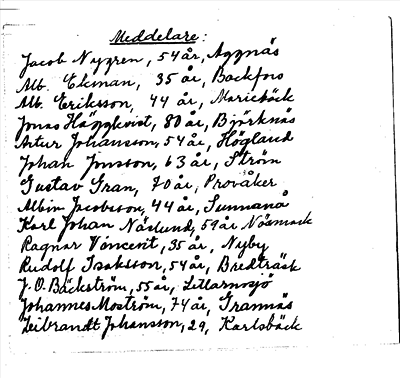 Meddelare:
Jacob Nygren, 54 år, Aggnäs
Alb. Ekman, 35 år, Backfors
Alb. Eriksson, 44 år, Mariebäck
Jonas Häggkvist, 80 år, Björknäs
Artur Johansson, 54 år, Högland
Johan Jonsson, 63 år, Ström
Gustav Gran, 70 år, Provåker
Albin Jacobsson, 44 år, Sunnanå
Karl Johan Näslund, 59 år Näsmark
Ragnar Vincent, 35 år, Nyby
Rudolf Isaksson, 54 år, Bredträsk
J. O. Bäckström, 55 år,
Johannes Moström, 74 år, Grannäs
Leibrandt Johansson, 29, Karlsbäck